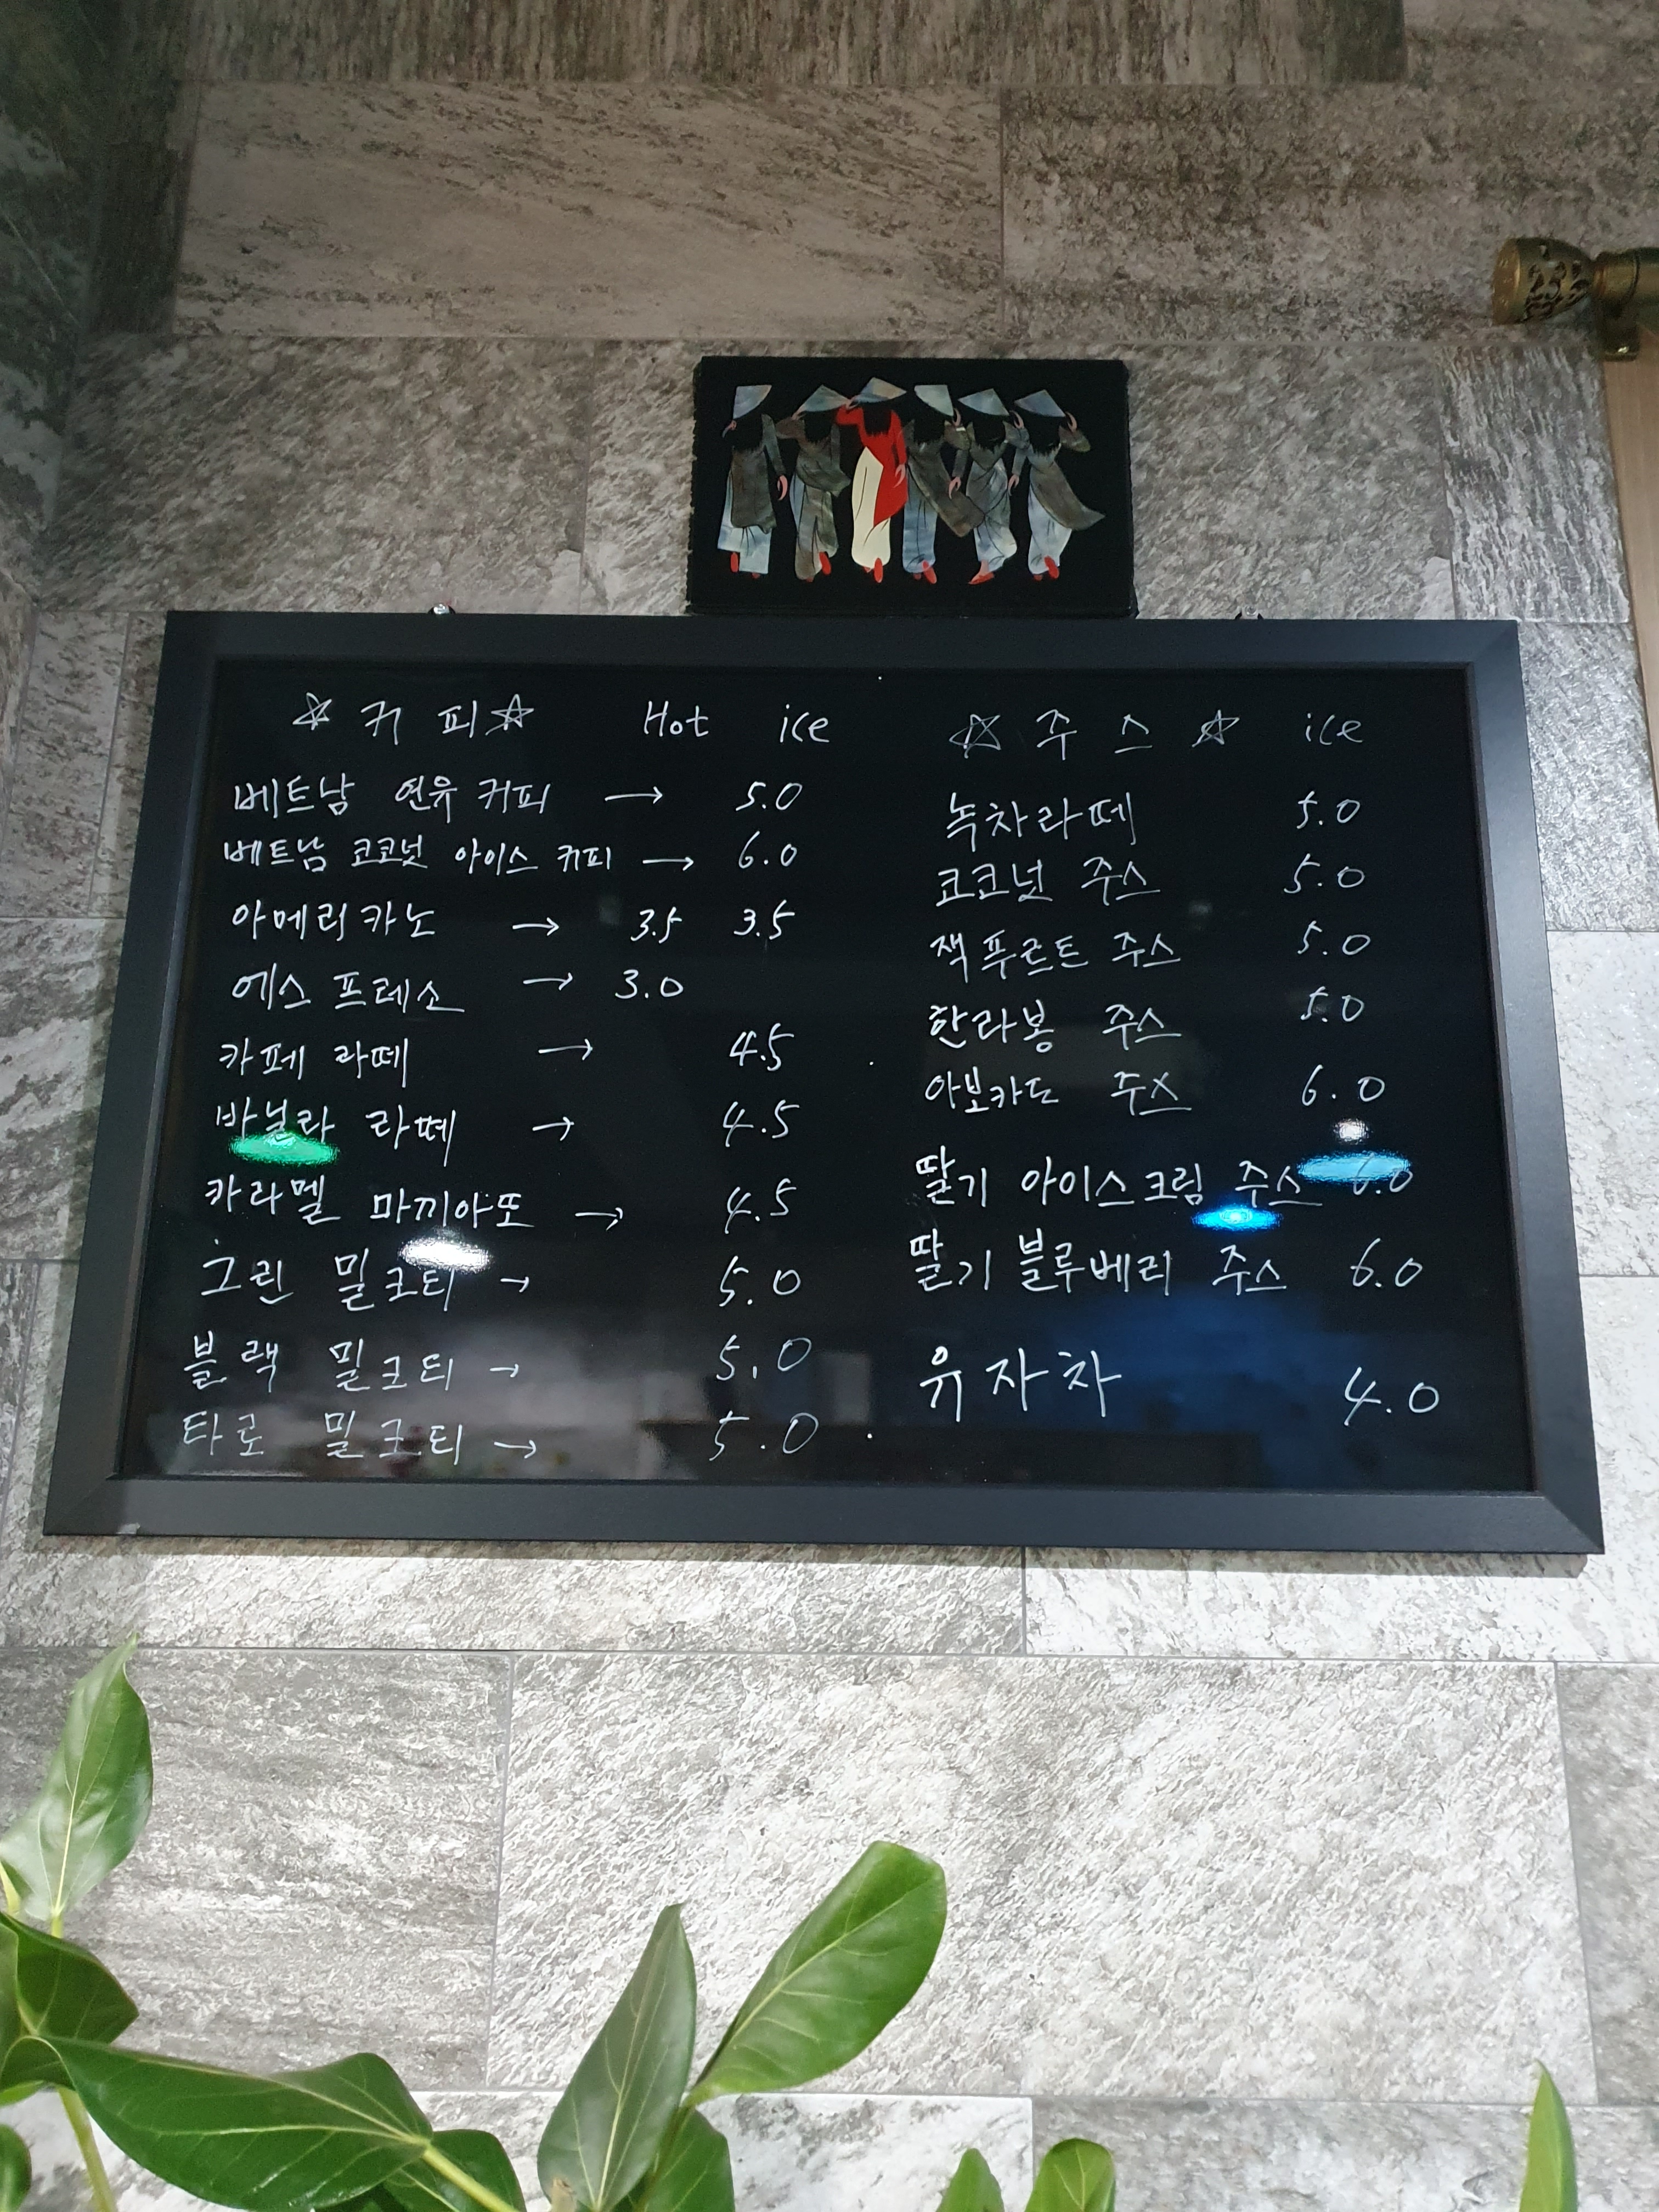 ☆ 커 피 ☆ Hot ice
베트남 연유 커피 → 5.0
베트남 코코넛 아이스 커피 → 6.0
아메리카노 → 3.5 3.5
에스프레소 → 3.0
카페 라떼 → 4.5
바닐라 라떼 → 4.5
카라멜 마끼아또 → 4.5
그린 밀크티 → 5.0
블랙 밀크티 → 5.0
타로 밀크티 → 5.0
☆ 주 스 ☆ ice
녹차라떼 5.0
코코넛 주스 5.0
잭푸르트 주스 5.0
한라봉 주스 5.0
아보카도 주스 6.0
딸기 아이스크림 주스 6.0
딸기 블루베리 주스 6.0
유자차 4.0